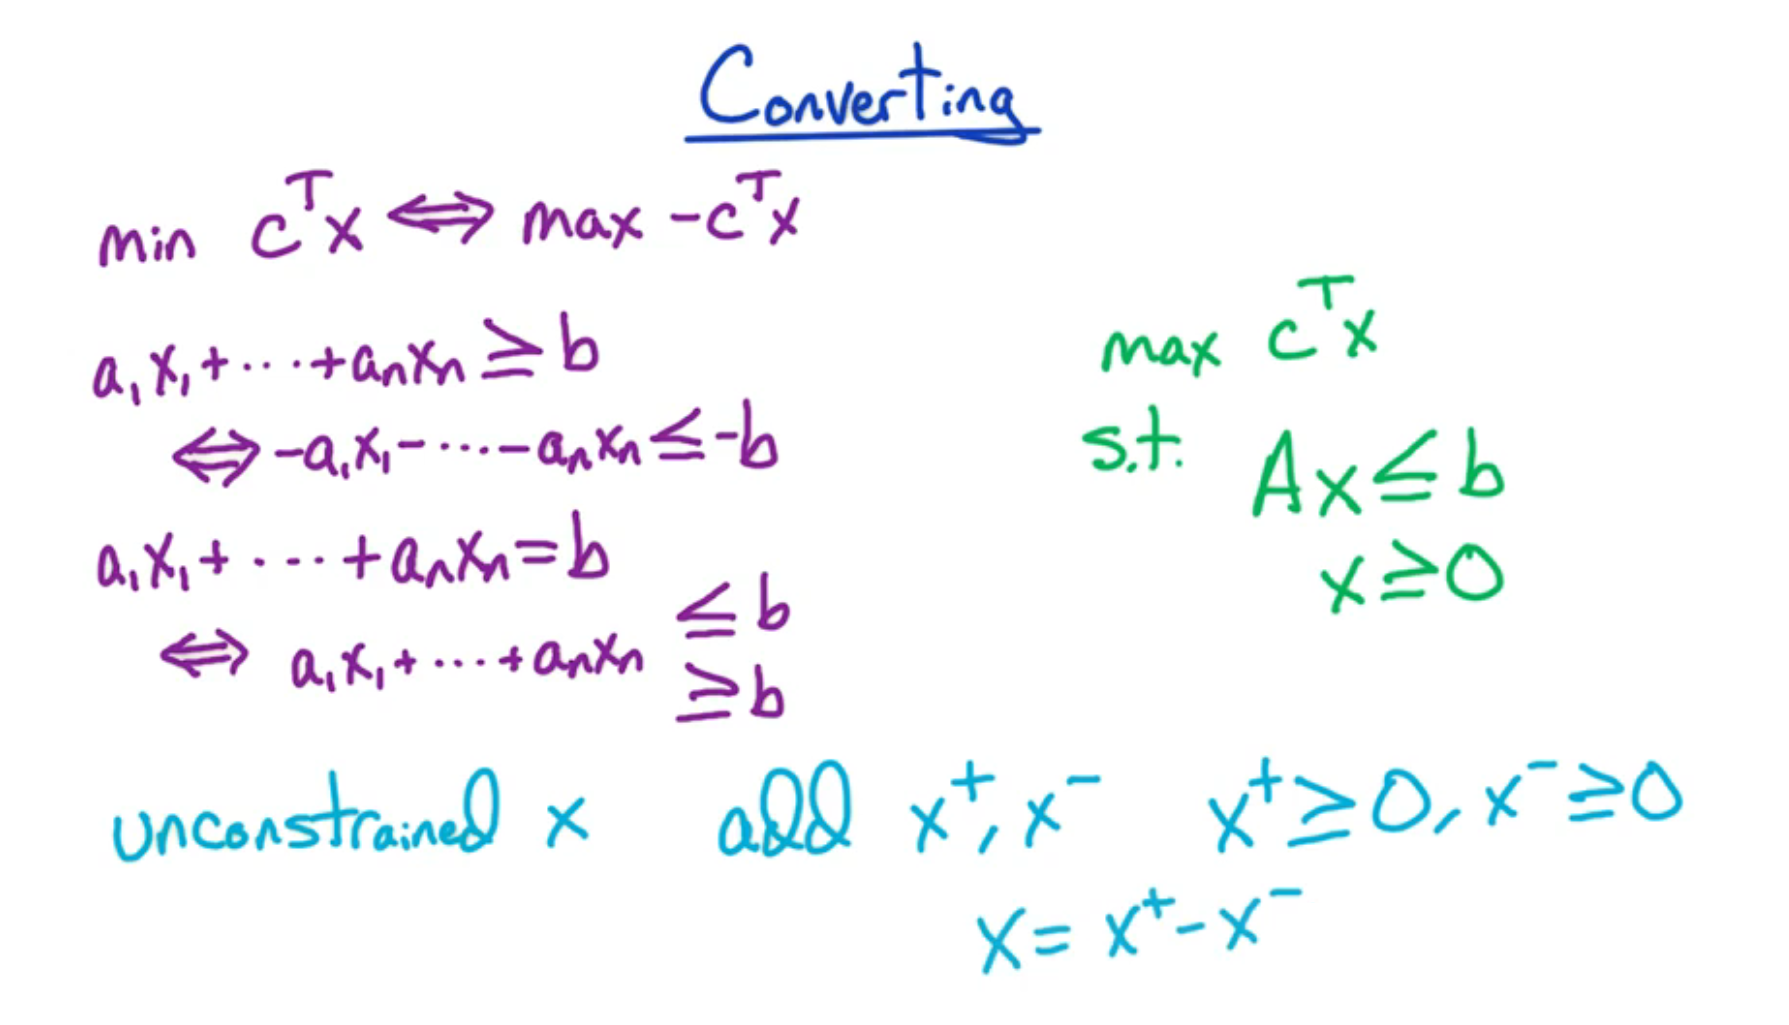 Converting
min cᵀx ⟺ max -cᵀx
a₁x₁+···+aₙxₙ ≥ b
⟺ -a₁x₁-····-aₙxₙ ≤ -b
a₁x₁+····+aₙxₙ = b
⟺ a₁x₁+····+aₙxₙ ≤ b
≥ b
max cᵀx
s.t. Ax ≤ b
x ≥ 0
unconstrained x add x⁺, x⁻ x⁺ ≥ 0, x⁻ ≥ 0
x = x⁺-x⁻